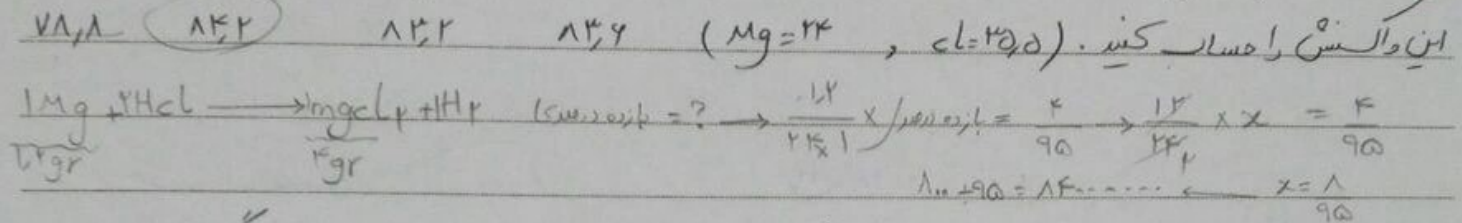 این واکنش را حساب کنید. (Mg=۲۴ , cl=۳۵,۵) ۸۳,۶ ۸۳,۲ ۸۴,۲ ۷۸,۸
1Mg + ۲Hcl → 1mgcl₂ + 1H₂ بازده درصدی = ? → ۱,۲ / ۲۴×۱ × بازده درصدی = ۴ / ۹۵ → ۱۲ / ۲۴ ۲ × x = ۴ / ۹۵
۱,۲gr ۴gr
۸۰۰ ÷ ۹۵ = ۸۴....... ← x = ۸ / ۹۵